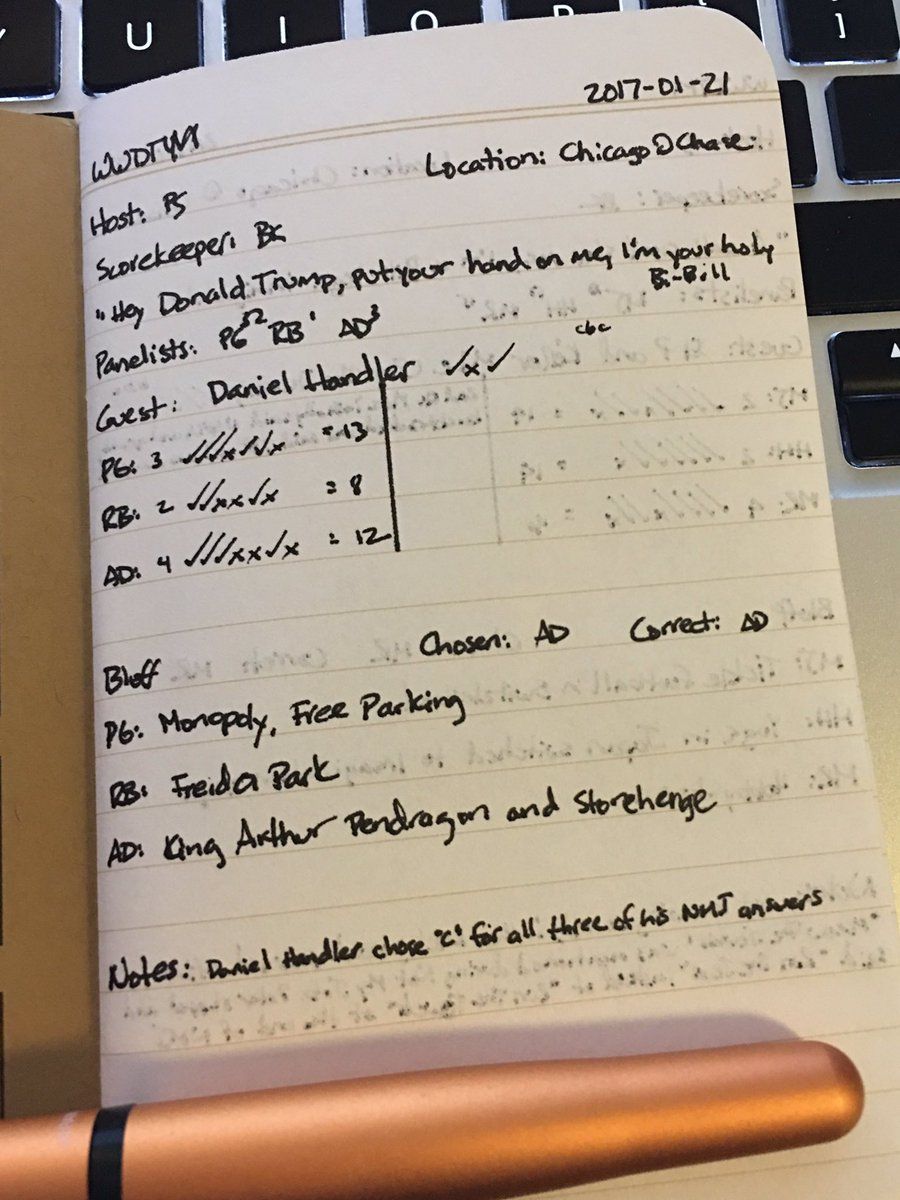 U I O P [ ]
2017-01-21
WWDTM
Location: Chicago @ Chase
Host: PS
Scorekeeper: BK
"Hey Donald Trump, put your hand on me, I'm your holy Bi-Bill"
Panelists: PG² RB¹ AD³
cbc
Guest: Daniel Handler ✓x✓
PG: 3 ✓✓✓x✓✓x = 13
RB: 2 ✓✓xx✓x = 8
AD: 4 ✓✓✓xx✓x = 12
Bluff Chosen: AD Correct: AD
PG: Monopoly, Free Parking
RB: Freida Park
AD: King Arthur Pendragon and Stonehenge
Notes: Daniel Handler chose "C" for all three of his NMJ answers